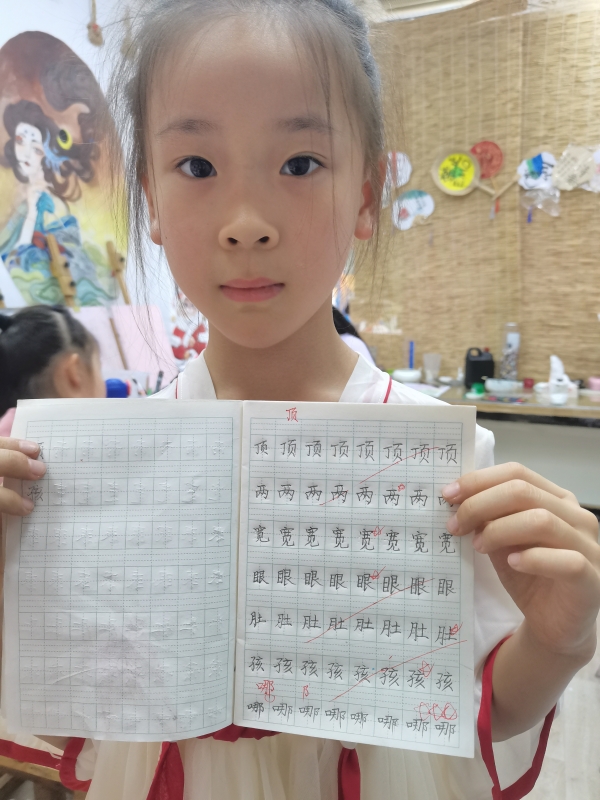 顶
顶顶顶顶顶顶顶顶
两两两两两两两两
宽宽宽宽宽宽宽宽
眼眼眼眼眼眼眼眼
肚肚肚肚肚肚肚肚
孩孩孩孩孩孩孩孩
哪 阝
哪哪哪哪哪哪哪哪